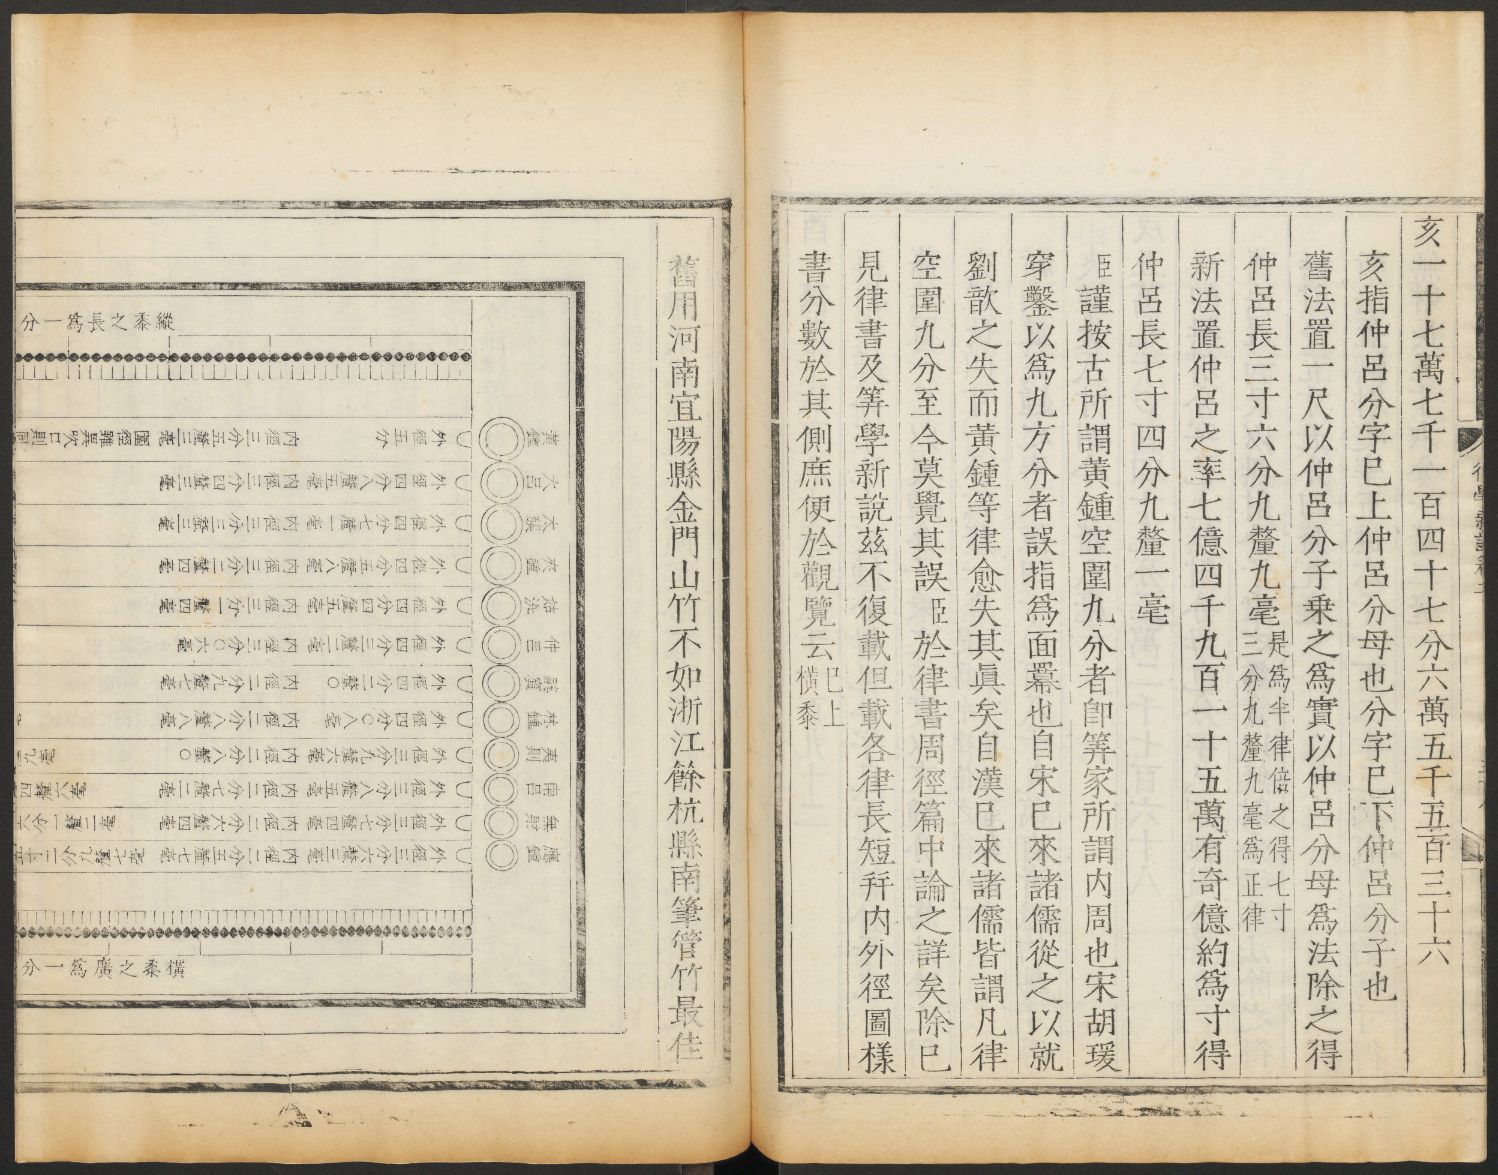 亥一十七萬七千一百四十七分六萬五千五百三十六
亥指仲呂分字巳上仲呂分母也分字巳下仲呂分子也
舊法置一尺以仲呂分子乗之爲實以仲呂分母爲法除之得
仲呂長三寸六分九釐九毫
是爲半律倍之得七寸
三分九釐九毫爲正律
新法置仲呂之率七億四千九百一十五萬有奇億約爲寸得
仲呂長七寸四分九釐一毫
臣謹按古所謂黃鍾空圍九分者卽筭家所謂内周也宋胡瑗
穿鑿以爲九方分者誤指爲面冪也自宋巳來諸儒從之以就
劉歆之失而黃鍾等律愈失其眞矣自漢巳來諸儒皆謂凡律
空圍九分至今莫覺其誤臣於律書周徑篇中論之詳矣除巳
見律書及筭學新說茲不復載但載各律長短幷内外徑圖樣
書分數於其側庶便於觀覽云
巳上
橫黍
舊用河南宜陽縣金門山竹不如浙江餘杭縣南筆管竹最佳
縱黍之長爲一分
黃鍾 外徑五分 内徑三分五釐三毫 圍徑雖異吹口則同
大呂 外徑四分八釐五毫 内徑三分四釐三毫
太簇 外徑四分七釐一毫 内徑三分三釐三毫
夾鍾 外徑四分五釐八毫 内徑三分二釐四毫
姑洗 外徑四分四釐五毫 内徑三分一釐四毫
仲呂 外徑四分三釐二毫 内徑三分〇六毫
蕤賓 外徑四分二釐〇 内徑二分九釐七毫
林鍾 外徑四分〇八毫 内徑二分八釐八毫
夷則 外徑三分九釐六毫 内徑二分八釐〇
南呂 外徑三分八釐五毫 内徑二分七釐二毫
無射 外徑三分七釐四毫 内徑二分六釐四毫
應鍾 外徑三分六釐三毫 内徑二分五釐七毫
橫黍之廣爲一分